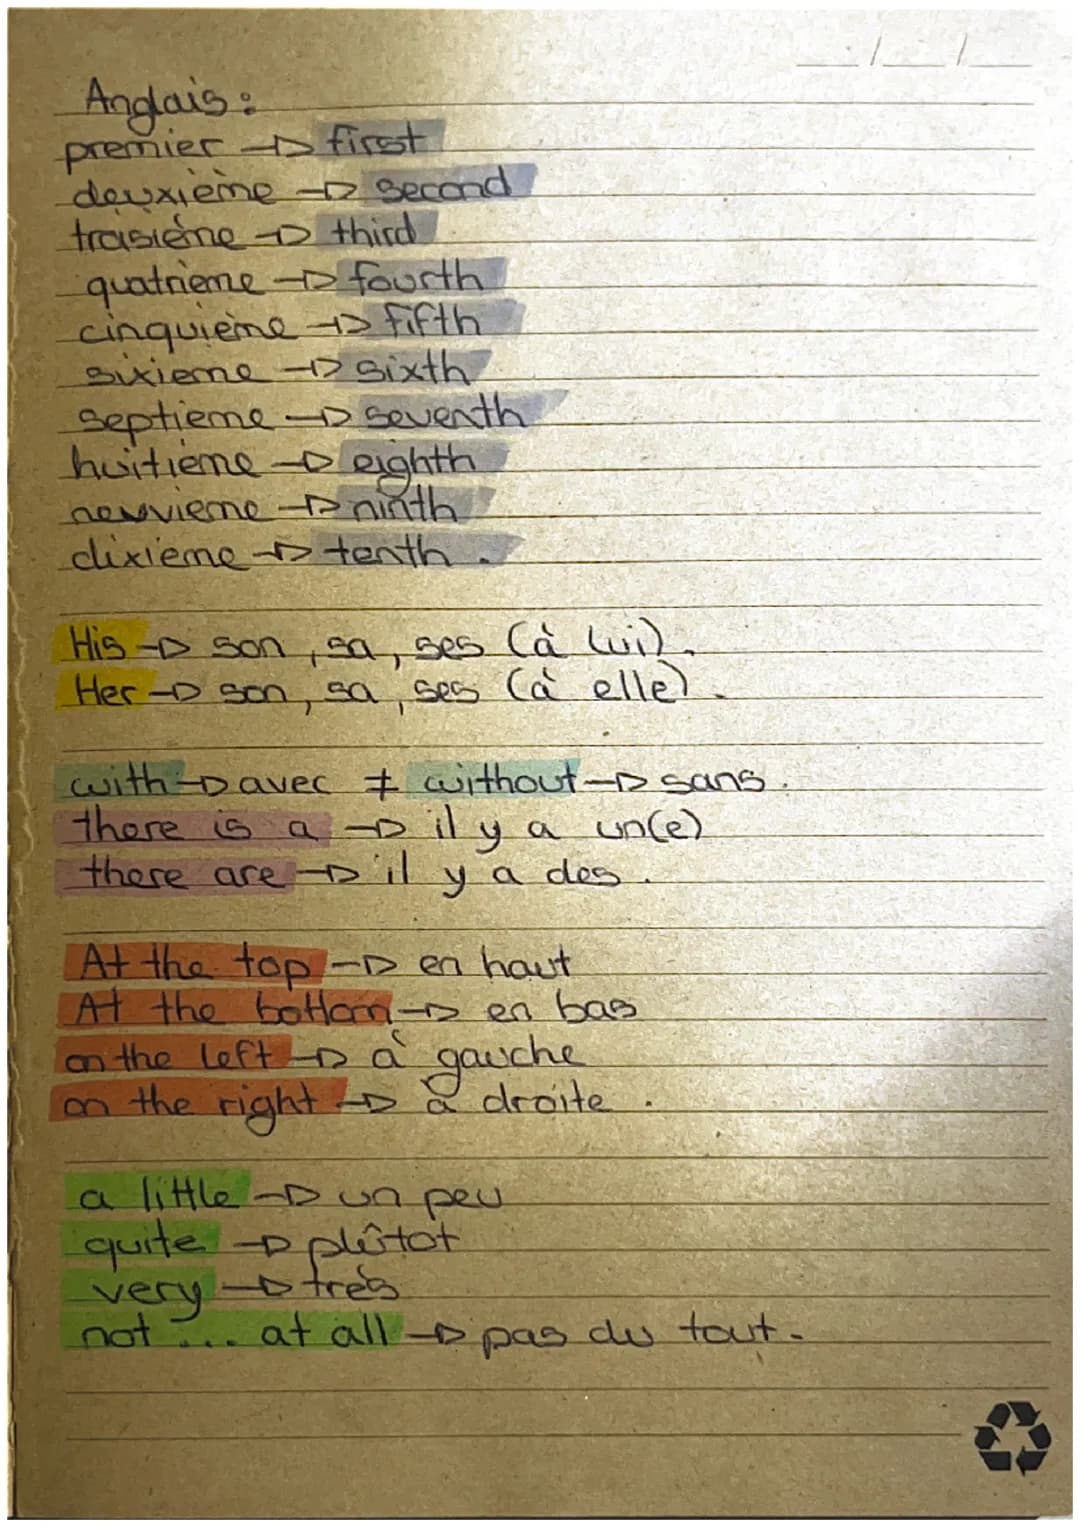 Anglais :
premier → first
deuxième → second
troisième → third
quatrième → fourth
cinquième → fifth
sixieme → sixth
septieme → seventh
huitieme → eighth
neuvieme → ninth
dixieme → tenth .
His → son, sa, ses (à lui).
Her → son, sa, ses (à elle).
with → avec ≠ without → sans.
there is a → il y a un(e)
there are → il y a des.
At the top → en haut
At the bottom → en bas
on the left → à gauche
on the right → à droite .
a little → un peu
quite → plûtot
very → très
not ... at all → pas du tout.